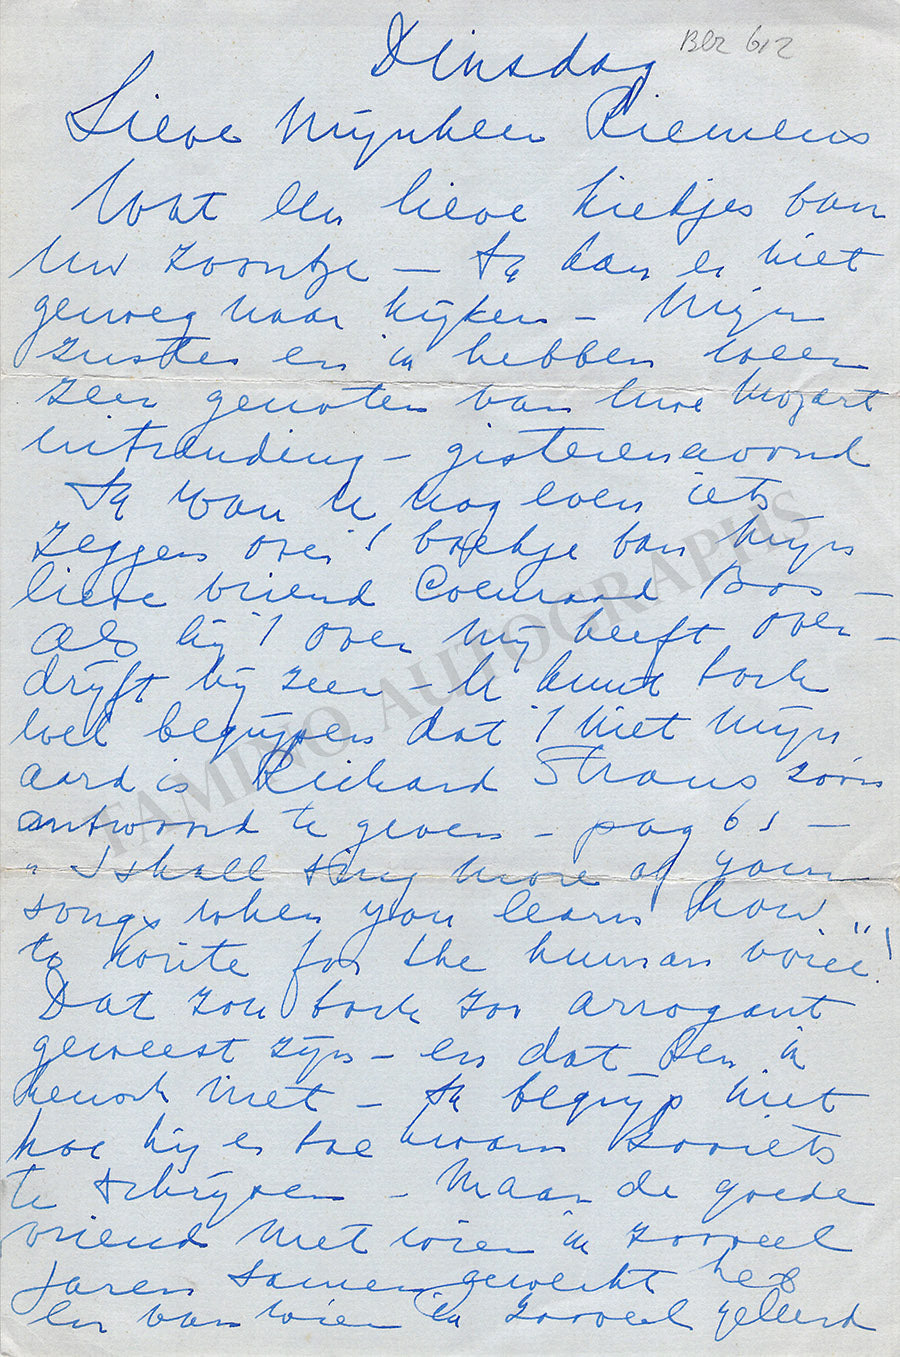 Dinsdag
Blz 612
Lieve Mijnheer Riemens
Wat een lieve kiekjes van
Uw zoontje – Ik kan er niet
genoeg naar kijken – Mijn
zuster en ik hebben weer
zeer genoten van Uwe Mozart
uitzending – gisterenavond
Ik wou U nog even iets
zeggen over 't boekje van mijn
lieve vriend Coenraad Bos –
Als hij 't over mij heeft over-
drijft hij zeer – U kunt toch
wel begrijpen dat 't niet mijn
aard is Richard Straus zoo'n
antwoord te geven – pag 61 –
"I shall sing more of your
songs when you learn how
to write for the human voice"!
Dat zou toch zoo arrogant
geweest zijn – en dat ben ik
heusch niet – Ik begrijp niet
hoe hij er toe kwam zooiets
te schrijven – Maar de goede
vriend met wien ik zooveel
jaren samengewerkt heb
en van wien ik zooveel geleerd
TAMINO AUTOGRAPHS